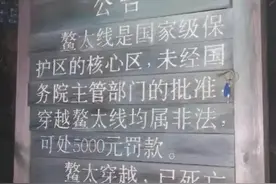 公告
鳌太线是国家级保
护区的核心区，未经国
务院主管部门的批准，
穿越鳌太线均属非法，
可处5000元罚款。
鳌太穿越，已死亡